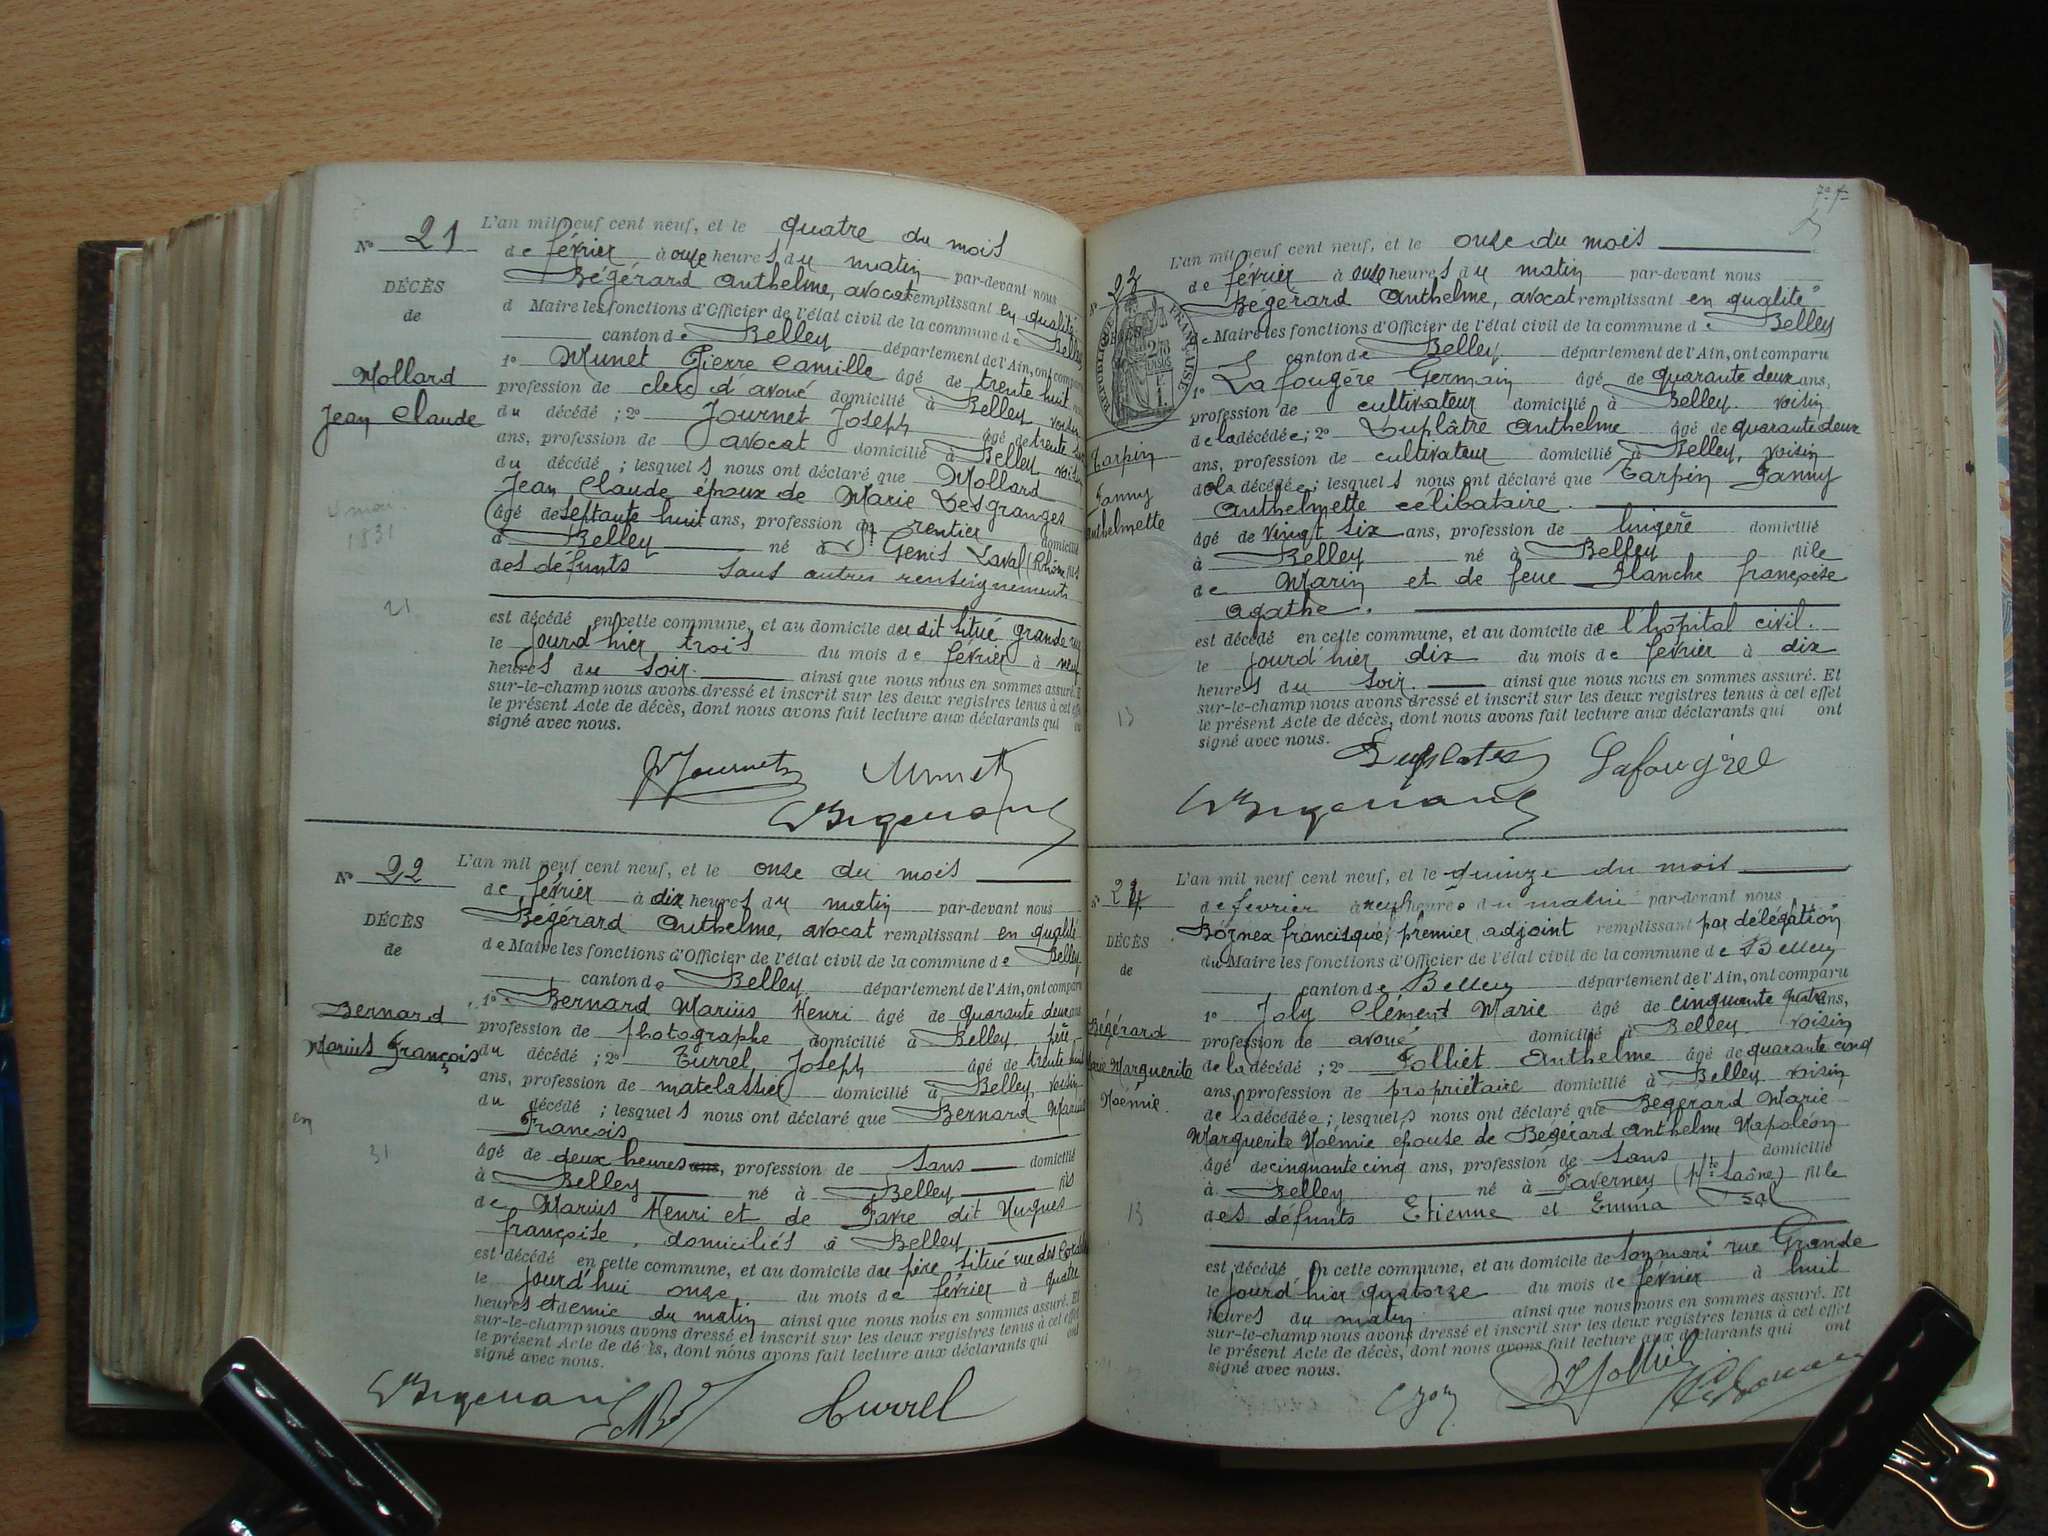 N° 21
DÉCÈS
de
Mollard
Jean Claude
4 mai
1831
21
L'an mil neuf cent neuf, et le quatre du mois
de février à onze heures du matin par-devant nous
Bégérard Anthelme, avocat remplissant en qualité
d Maire les fonctions d'Officier de l'état civil de la commune de Belley
canton de Belley département de l'Ain, ont comparu
1° Munet Pierre Camille âgé de trente huit ans
profession de clerc d'avoué domicilié à Belley, voisin
du décédé ; 2° Journet Joseph âgé de trente
ans, profession de avocat domicilié à Belley, voisin
du décédé ; lesquels nous ont déclaré que Mollard
Jean Claude époux de Marie Desgranges
âgé de septante huit ans, profession de rentier domicilié
à Belley né à St Genis Laval (Rhône) fils
des défunts sans autres renseignements
est décédé en cette commune, et au domicile du dit situé grande rue
le jourd'hier trois du mois de février à neuf
heures du soir. ainsi que nous nous en sommes assuré. Et
sur-le-champ nous avons dressé et inscrit sur les deux registres tenus à cet effet
le présent Acte de décès, dont nous avons fait lecture aux déclarants qui
signé avec nous.
J Journet Munet
N° 22
DÉCÈS
de
Bernard
Marius François
31
L'an mil neuf cent neuf, et le onze du mois
de février à dix heures du matin par-devant nous
Bégérard Anthelme, avocat remplissant en qualité
de Maire les fonctions d'Officier de l'état civil de la commune de Belley
canton de Belley département de l'Ain, ont comparu
1° Bernard Marius Henri âgé de quarante deux ans
profession de photographe domicilié à Belley, père
du décédé ; 2° Turrel Joseph âgé de trente huit
ans, profession de matelassier domicilié à Belley, voisin
du décédé ; lesquels nous ont déclaré que Bernard Marius
François
âgé de deux heures ans, profession de sans domicilié
à Belley né à Belley fils
de Marius Henri et de Favre dit Hugues
françoise, domiciliés à Belley
est décédé en cette commune, et au domicile du père situé rue des
le jourd'hui onze du mois de février à quatre
heures et demie du matin ainsi que nous nous en sommes assuré. Et
sur-le-champ nous avons dressé et inscrit sur les deux registres tenus à cet effet
le présent Acte de décès, dont nous avons fait lecture aux déclarants qui ont
signé avec nous.
Turrel
N° 23
RÉPUBLIQUE FRANÇAISE
Tarpin
Fanny
Anthelmette
13
L'an mil neuf cent neuf, et le onze du mois
de février à onze heures du matin par-devant nous
Bégérard Anthelme, avocat remplissant en qualité
de Maire les fonctions d'Officier de l'état civil de la commune de Belley
canton de Belley département de l'Ain, ont comparu
1° Lafougère Germain âgé de quarante deux ans,
profession de cultivateur domicilié à Belley voisin
de la décédée ; 2° Duplâtre Anthelme âgé de quarante deux
ans, profession de cultivateur domicilié à Belley, voisin
de la décédée ; lesquels nous ont déclaré que Tarpin Fanny
Anthelmette célibataire.
âgé de vingt six ans, profession de lingère domicilié
à Belley né à Belley fille
de Marin et de feue Planche françoise
Agathe.
est décédé en cette commune, et au domicile de l'hôpital civil.
le jourd'hier dix du mois de février à dix
heures du soir. ainsi que nous nous en sommes assuré. Et
sur-le-champ nous avons dressé et inscrit sur les deux registres tenus à cet effet
le présent Acte de décès, dont nous avons fait lecture aux déclarants qui ont
signé avec nous.
Lafougère
N° 24
DÉCÈS
de
Bégérard
Marie Marguerite
Noémie
13
L'an mil neuf cent neuf, et le quinze du mois
de fevrier à neuf heures du matin par-devant nous
Bornex francisque, premier adjoint remplissant par délégation
du Maire les fonctions d'Officier de l'état civil de la commune de Belley
canton de Belley département de l'Ain, ont comparu
1° Joly Clément Marie âgé de cinquante quatre ans,
profession de avoué domicilié à Belley voisin
de la décédé ; 2° Folliet Anthelme âgé de quarante cinq
ans, profession de propriétaire domicilié à Belley voisin
de la décédée ; lesquels nous ont déclaré que Bégérard Marie
Marguerite Noémie épouse de Bégérard Anthelme Napoléon
âgé de cinquante cinq ans, profession de sans domicilié
à Belley né à Faverney (Hte Saône) fille
des défunts Etienne et Emma
est décédé en cette commune, et au domicile de son mari rue Grande
le jourd'hier quatorze du mois de février à huit
heures du matin ainsi que nous nous en sommes assuré. Et
sur-le-champ nous avons dressé et inscrit sur les deux registres tenus à cet effet
le présent Acte de décès, dont nous avons fait lecture aux déclarants qui ont
signé avec nous.
C Joly Folliet